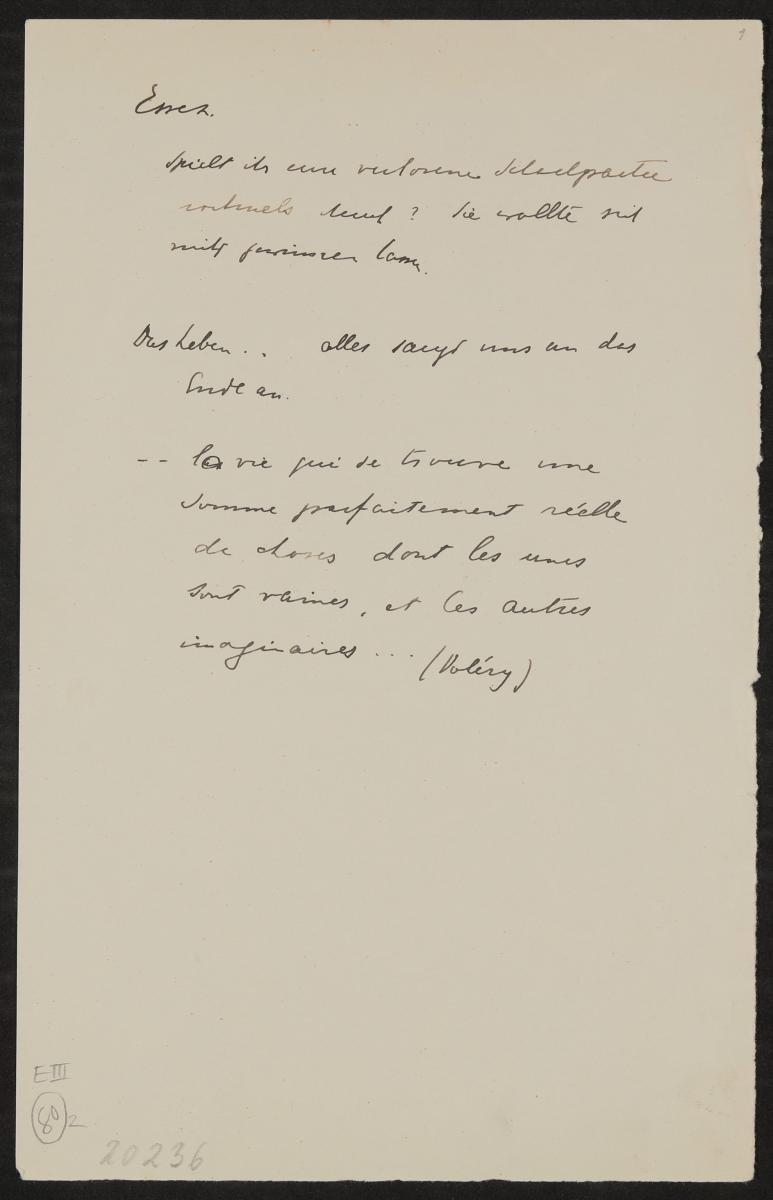 1
Essex.
spielt ihr eine verlorene Schachpartie
nochmals durch? Sie wollte sich
nicht gewinnen lassen.
Das Leben . . alles saugt uns an das
Ende an.
-- la vie qui se trouve une
somme parfaitement réelle
de choses dont les unes
sont vaines, et les autres
imaginaires ... (Valéry)
E III
80 2
20236